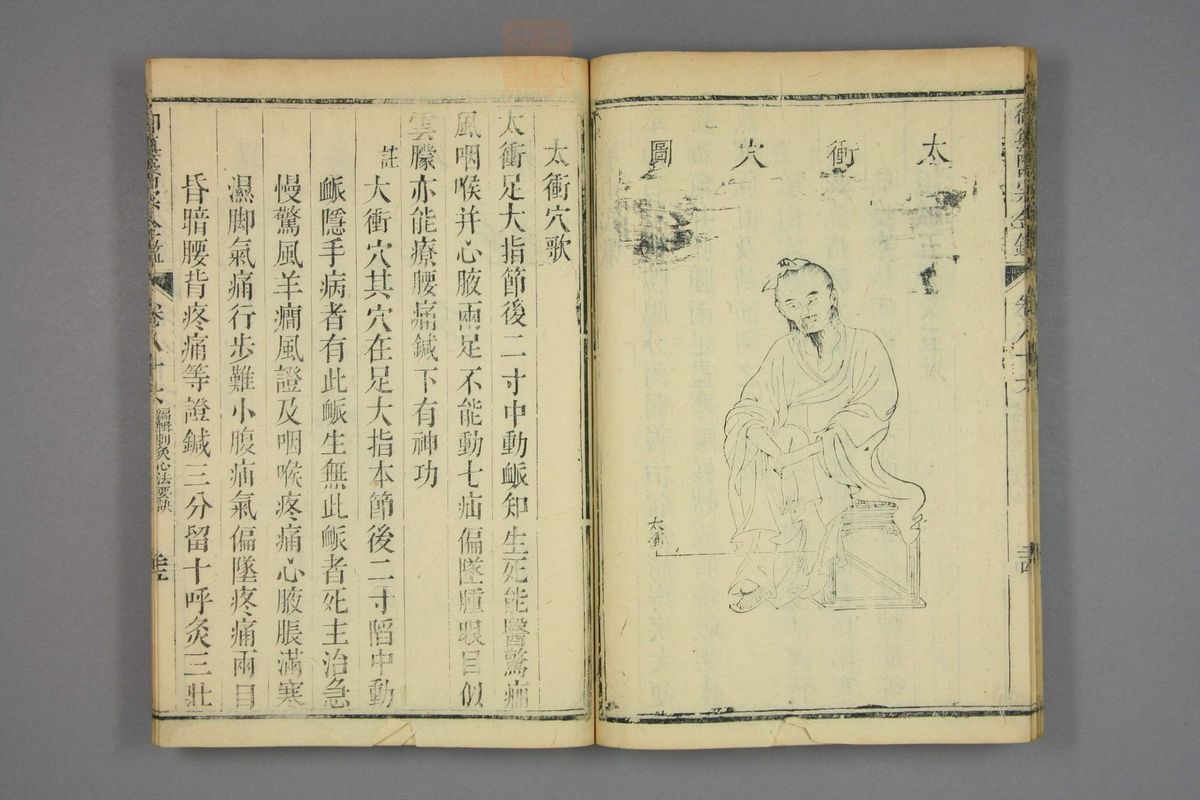 太衝穴圖
太衝
太衝穴歌
太衝足大指節後二寸中動脈知生死能醫驚癇
風咽喉并心腋兩足不能動七疝偏墜腫眼目似
雲朦亦能療腰痛鍼下有神功
註
大衝穴其穴在足大指本節後二寸陷中動
脈隱手病者有此脈生無此脈者死主治急
慢驚風羊癎風證及咽喉疼痛心腋脹滿寒
濕脚氣痛行步難小腹疝氣偏墜疼痛兩目
昏暗腰背疼痛等證鍼三分留十呼灸三壯
御纂醫宗金鑑
卷八十六
編輯刺灸心法要訣